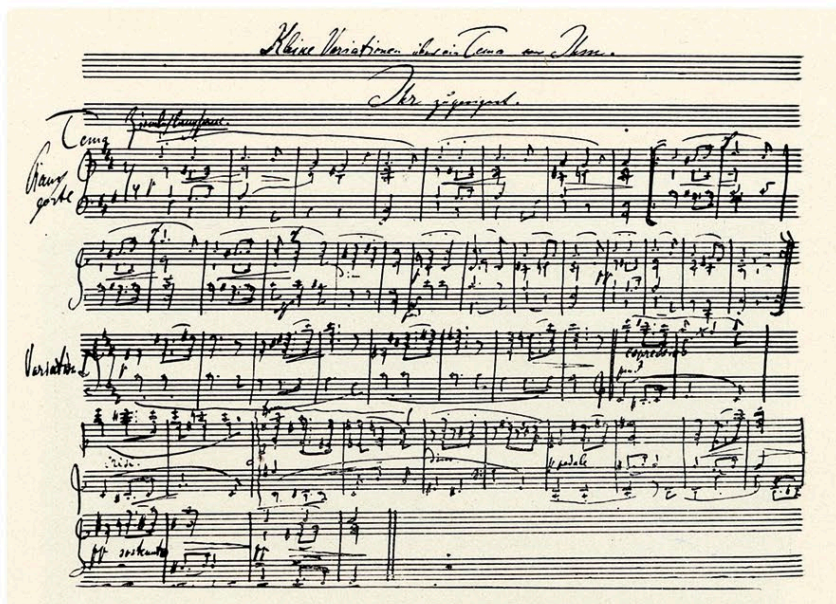 Kleine Variationen über ein Tema von Ihm.
Ihr zugeeignet.
Tema Ziemlich langsam.
Piano
forte
Dim
pp
Variation
espressivo
Dim
pedale
pp sostenuto
pp